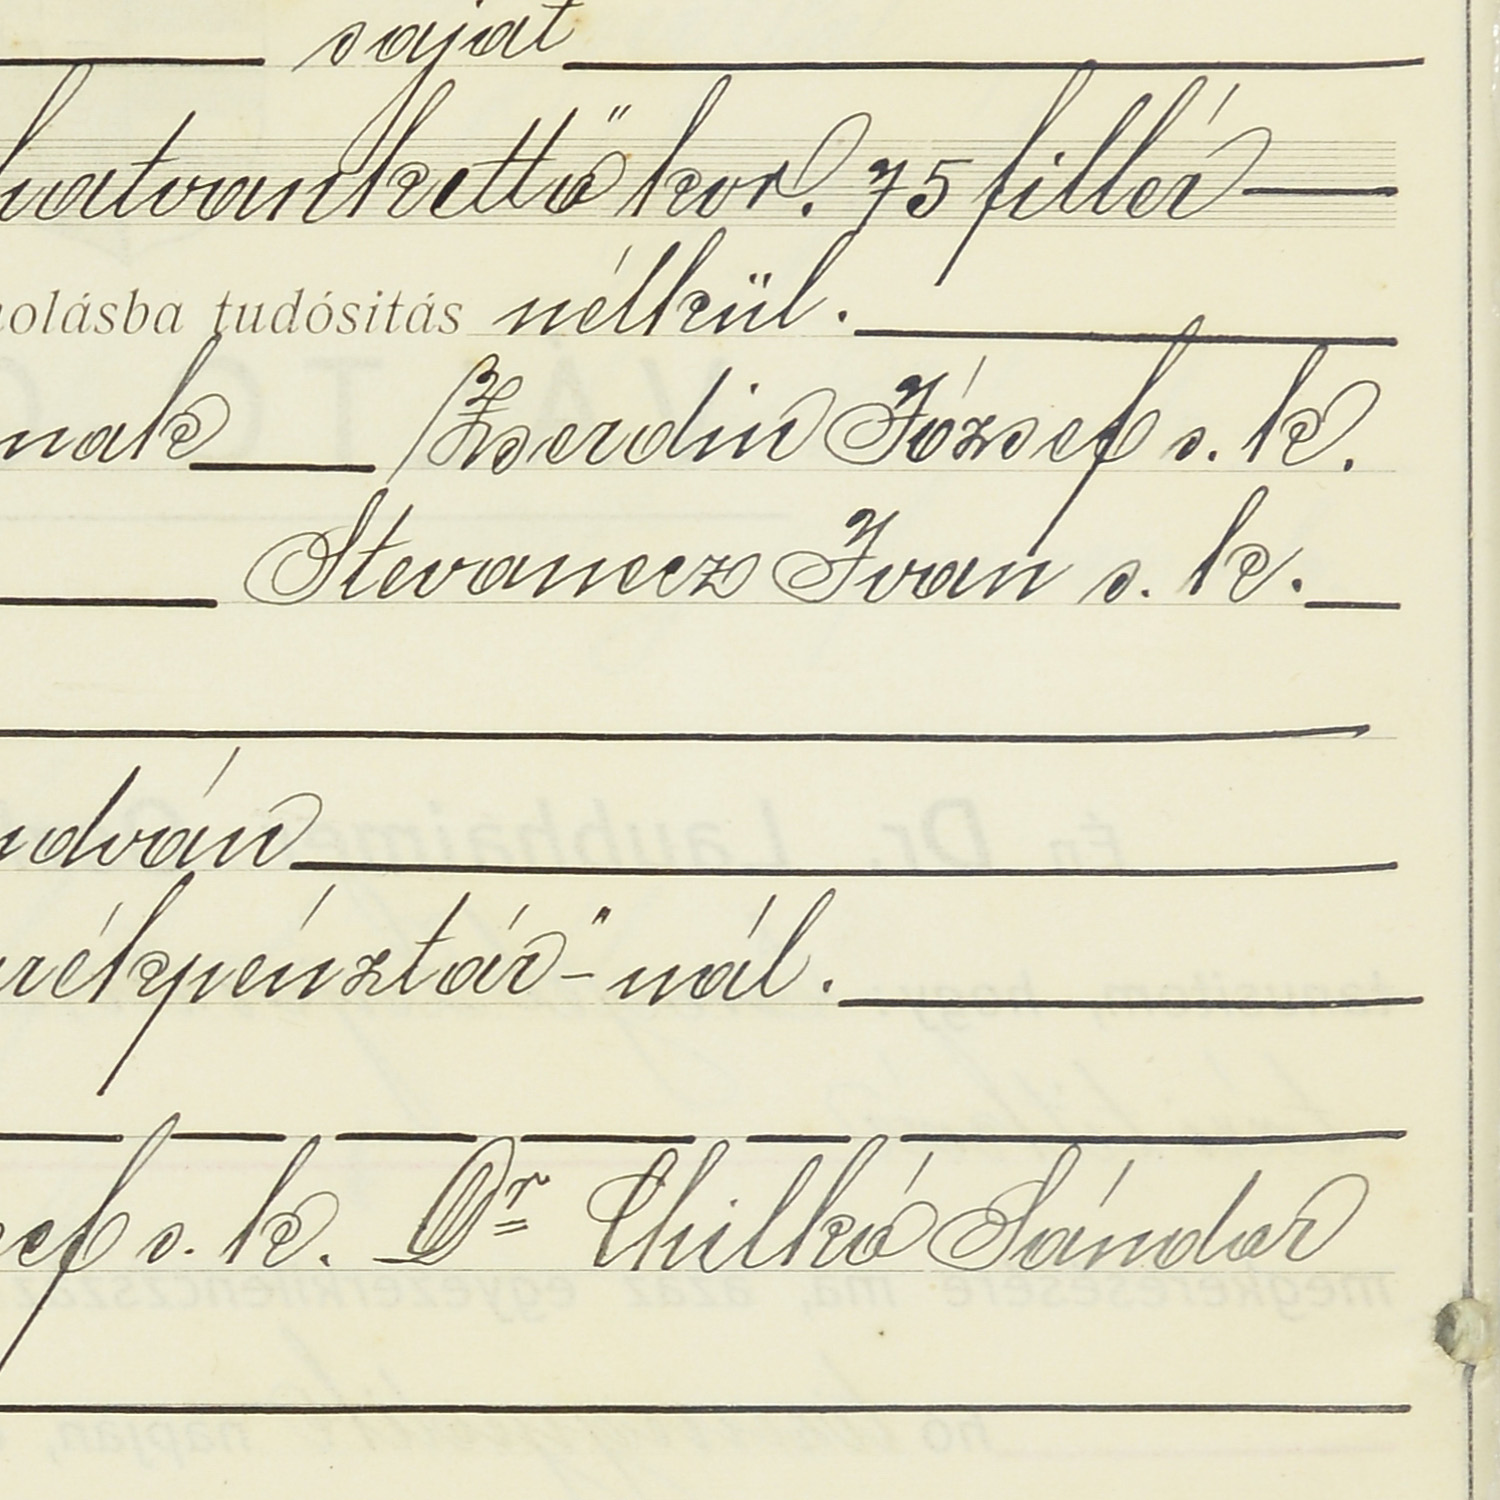 saját
hatvankettő kor. 75 fillér
olásba tudósitás nélkül.
nak Zserdin József s. k.
Stevanecz Iván s. k.
ndván
rékpénztár"-nál.
sef s. k. Dr Chilkó Sándor